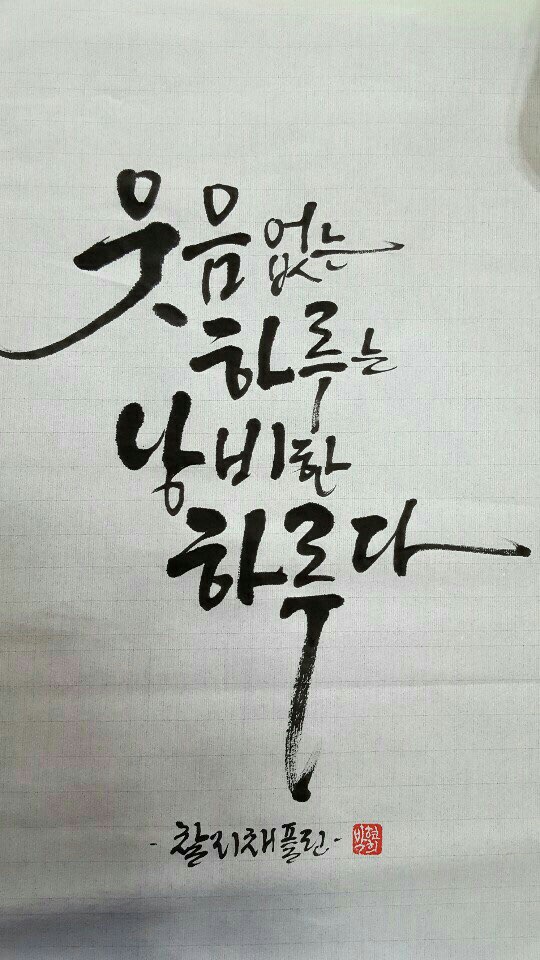 웃음 없는
하루는
낭비한
하루다
- 찰리채플린 -